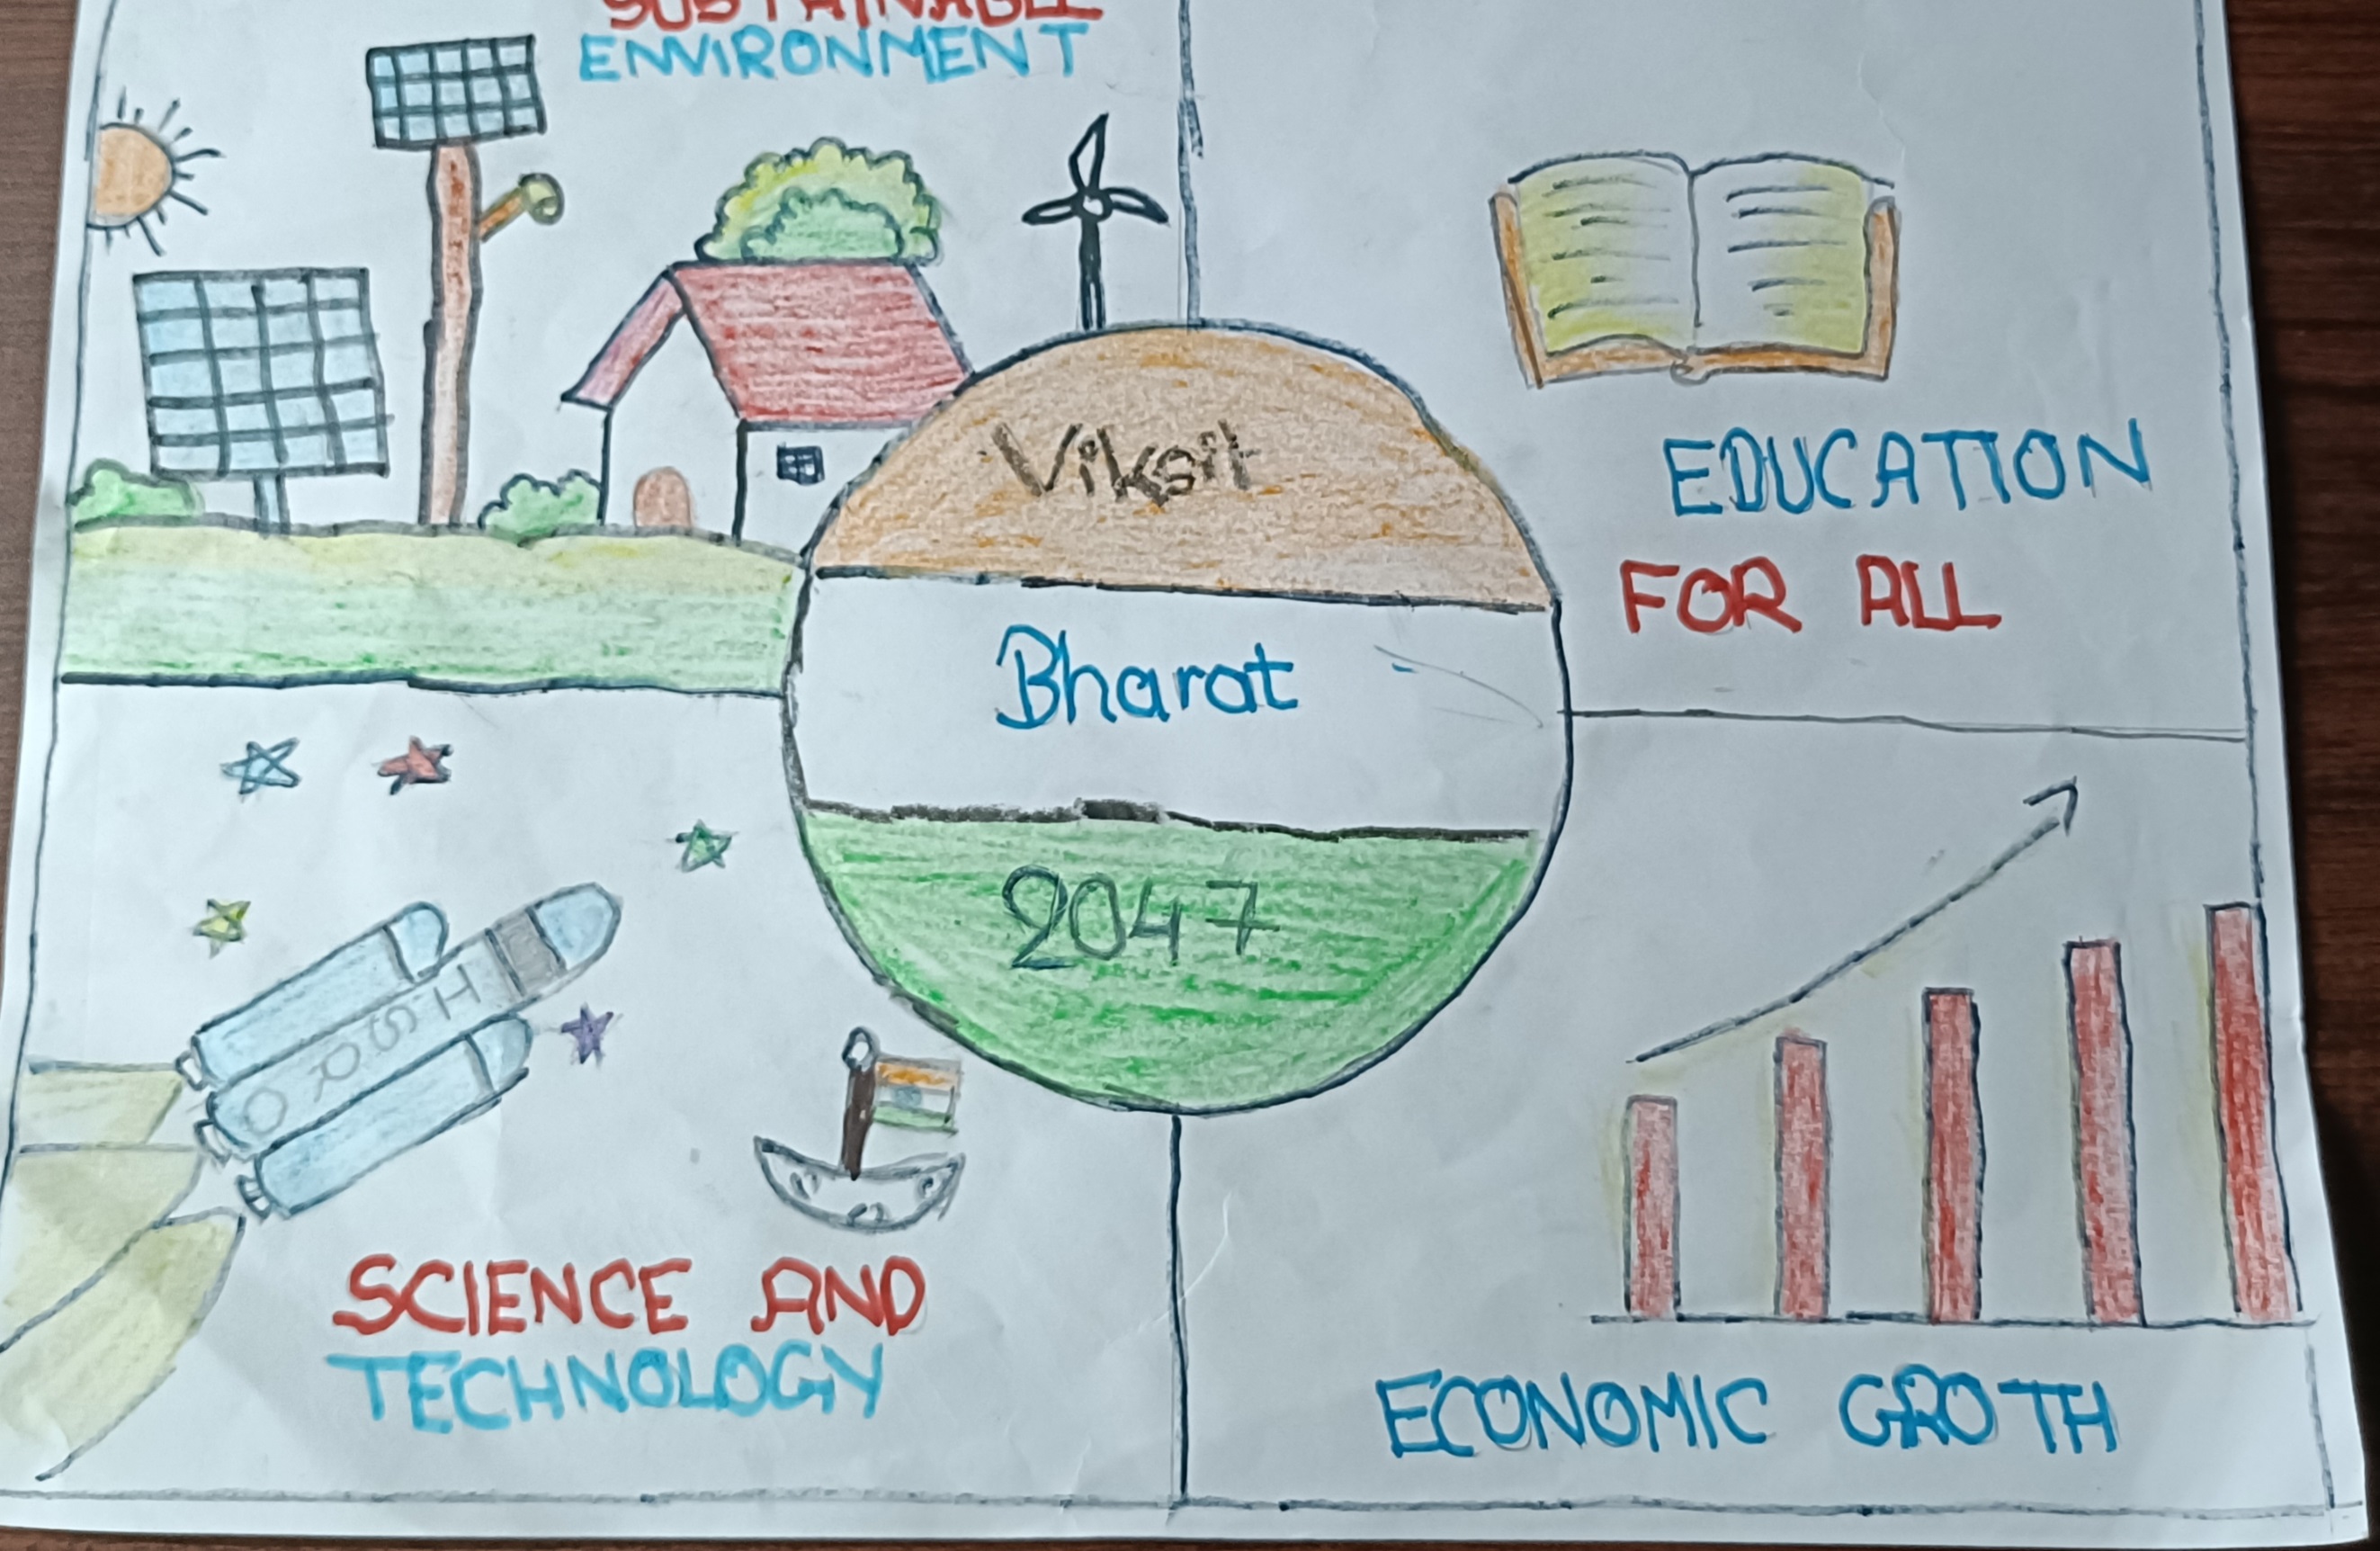 SUSTAINABLE
ENVIRONMENT
EDUCATION
FOR ALL
Viksit
Bharat
2047
ISRO
SCIENCE AND
TECHNOLOGY
ECONOMIC GROTH